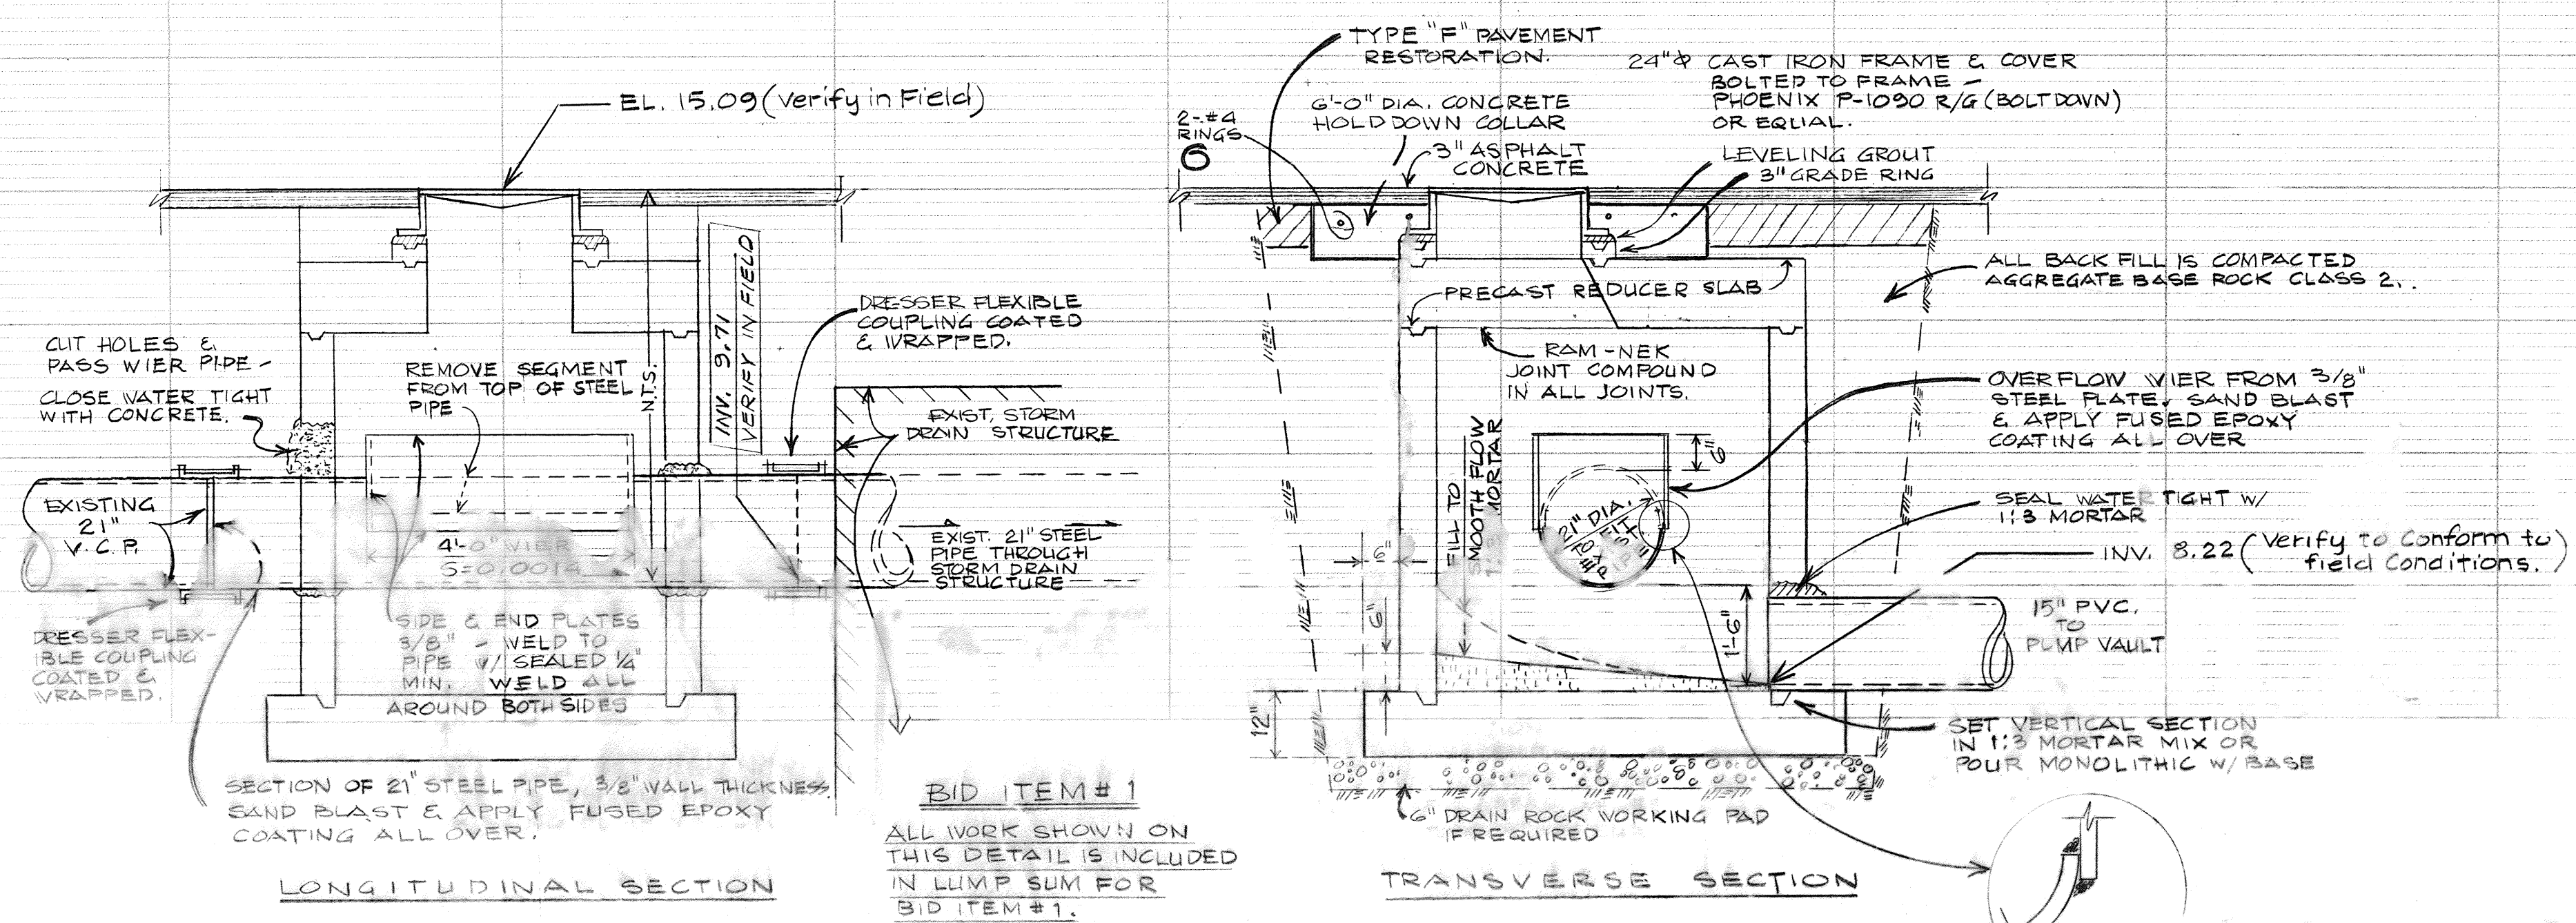 EL. 15.09 (Verify in Field)
CUT HOLES &
PASS WIER PIPE -
CLOSE WATER TIGHT
WITH CONCRETE.
REMOVE SEGMENT
FROM TOP OF STEEL
PIPE
N.T.S.
INV. 9.71
VERIFY IN FIELD
DRESSER FLEXIBLE
COUPLING COATED
& WRAPPED.
EXIST. STORM
DRAIN STRUCTURE
EXISTING
21"
V.C.P.
4'-0" WIER
S=0.0014
EXIST. 21" STEEL
PIPE THROUGH
STORM DRAIN
STRUCTURE
DRESSER FLEX-
IBLE COUPLING
COATED &
WRAPPED.
SIDE & END PLATES
3/8" - WELD TO
PIPE W/ SEALED 1/4"
MIN. WELD ALL
AROUND BOTH SIDES
SECTION OF 21" STEEL PIPE, 3/8" WALL THICKNESS.
SAND BLAST & APPLY FUSED EPOXY
COATING ALL OVER.
LONGITUDINAL SECTION
BID ITEM # 1
ALL WORK SHOWN ON
THIS DETAIL IS INCLUDED
IN LUMP SUM FOR
BID ITEM # 1.
TYPE "F" PAVEMENT
RESTORATION.
2-#4
RINGS
6
6'-0" DIA. CONCRETE
HOLD DOWN COLLAR
3" ASPHALT
CONCRETE
24"ϕ CAST IRON FRAME & COVER
BOLTED TO FRAME -
PHOENIX P-1090 R/G (BOLT DOWN)
OR EQUAL.
LEVELING GROUT
3" GRADE RING
ALL BACK FILL IS COMPACTED
AGGREGATE BASE ROCK CLASS 2.
PRECAST REDUCER SLAB
RAM-NEK
JOINT COMPOUND
IN ALL JOINTS.
OVERFLOW WIER FROM 3/8"
STEEL PLATE. SAND BLAST
& APPLY FUSED EPOXY
COATING ALL OVER
6"
FILL TO
SMOOTH FLOW
MORTAR
21" DIA.
SEAL WATER TIGHT W/
1:3 MORTAR
INV. 8.22 (Verify to Conform to
field Conditions.)
6"
6"
1'-6"
15" PVC.
TO
PUMP VAULT
12"
SET VERTICAL SECTION
IN 1:3 MORTAR MIX OR
POUR MONOLITHIC W/ BASE
6" DRAIN ROCK WORKING PAD
IF REQUIRED
TRANSVERSE SECTION